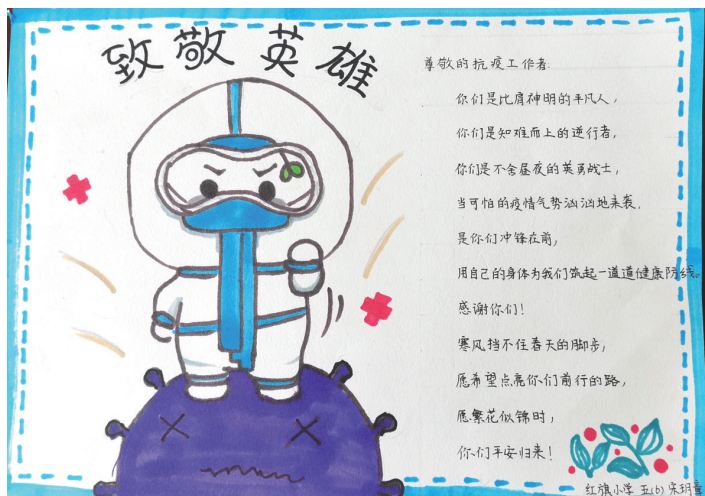 致敬英雄
尊敬的抗疫工作者:
你们是比肩神明的平凡人,
你们是知难而上的逆行者,
你们是不舍昼夜的英勇战士,
当可怕的疫情气势汹汹地来袭,
是你们冲锋在前,
用自己的身体为我们筑起一道道健康防线。
感谢你们!
寒风挡不住春天的脚步,
愿希望点亮你们前行的路,
愿繁花似锦时,
你们平安归来!
红旗小学 五(6) 宋玥童